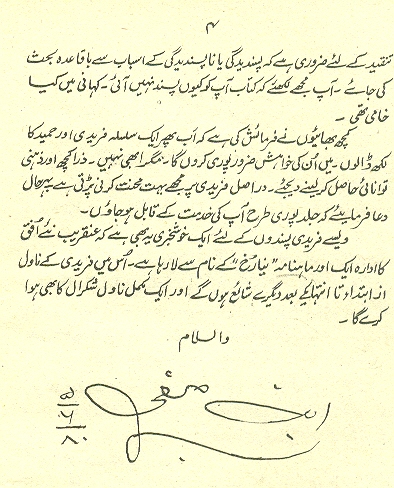 ۴
تنقید کے لئے ضروری ہے کہ پسندیدگی یا ناپسندیدگی کے اسباب سے باقاعدہ بحث
کی جائے۔ آپ مجھے لکھئے کہ کتاب آپ کو کیوں پسند نہیں آئی۔ کہانی میں کیا
خامی تھی۔
کچھ بھائیوں نے فرمائش کی ہے کہ اب پھر ایک سلسلہ فریدی اور حمید کا
لکھ ڈالوں۔ میں اُن کی خواہش ضرور پوری کروں گا۔ مگر ابھی نہیں۔ ذرا کچھ اور ذہنی
توانائی حاصل کر لینے دیجئے۔ دراصل فریدی پر مجھے بہت محنت کرنی پڑتی ہے بہرحال
دعا فرمایئے کہ جلد پوری طرح آپ کی خدمت کے قابل ہو جاؤں۔
ویسے فریدی پسندوں کے لئے ایک خوشخبری یہ بھی ہے کہ عنقریب نئے اُفق
کا ادارہ ایک اور ماہنامہ "نیا رُخ" کے نام سے لا رہا ہے۔ اُس میں فریدی کے ناول
از ابتداء تا انتہا یکے بعد دیگرے شائع ہوں گے اور ایک مکمل ناول شکرال کا بھی ہوا
کرے گا۔
والسلام
ابن صفی
۵
۶
۸۰